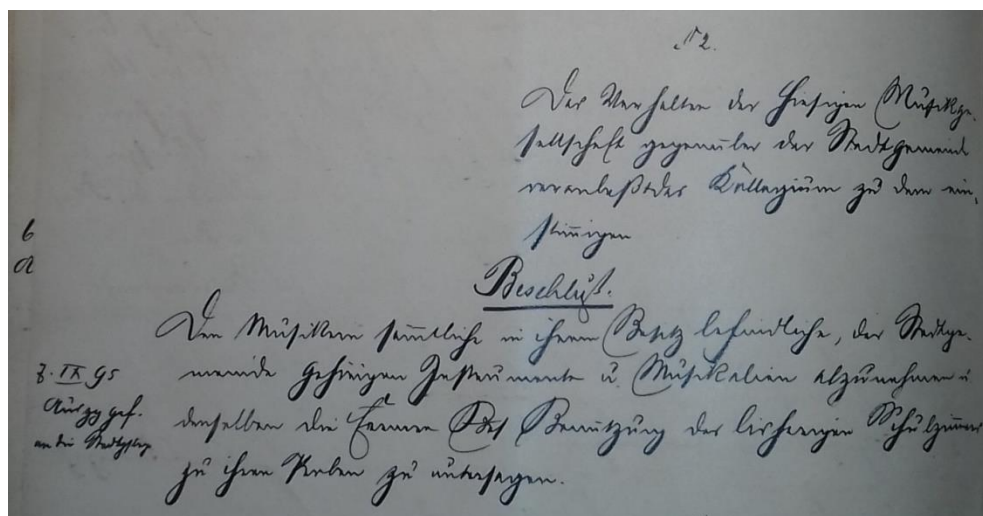 № 2.
Das Verhalten der hiesigen Musikge-
sellschaft gegenüber der Stadtgemeinde
veranlaßt das Kollegium zu dem ein-
stimigen
Beschluß.
6
a
Den Musikern sämtliche in ihrem Besitz befindliche, der Stadtge-
meinde gehörigen Instrumente u. Musikalien abzunehmen u.
denselben die fernere Benützung des bisherigen Schulzimmers
zu ihren Proben zu untersagen.
3. IX 95
Auszug gef.
an die Stadtpflege